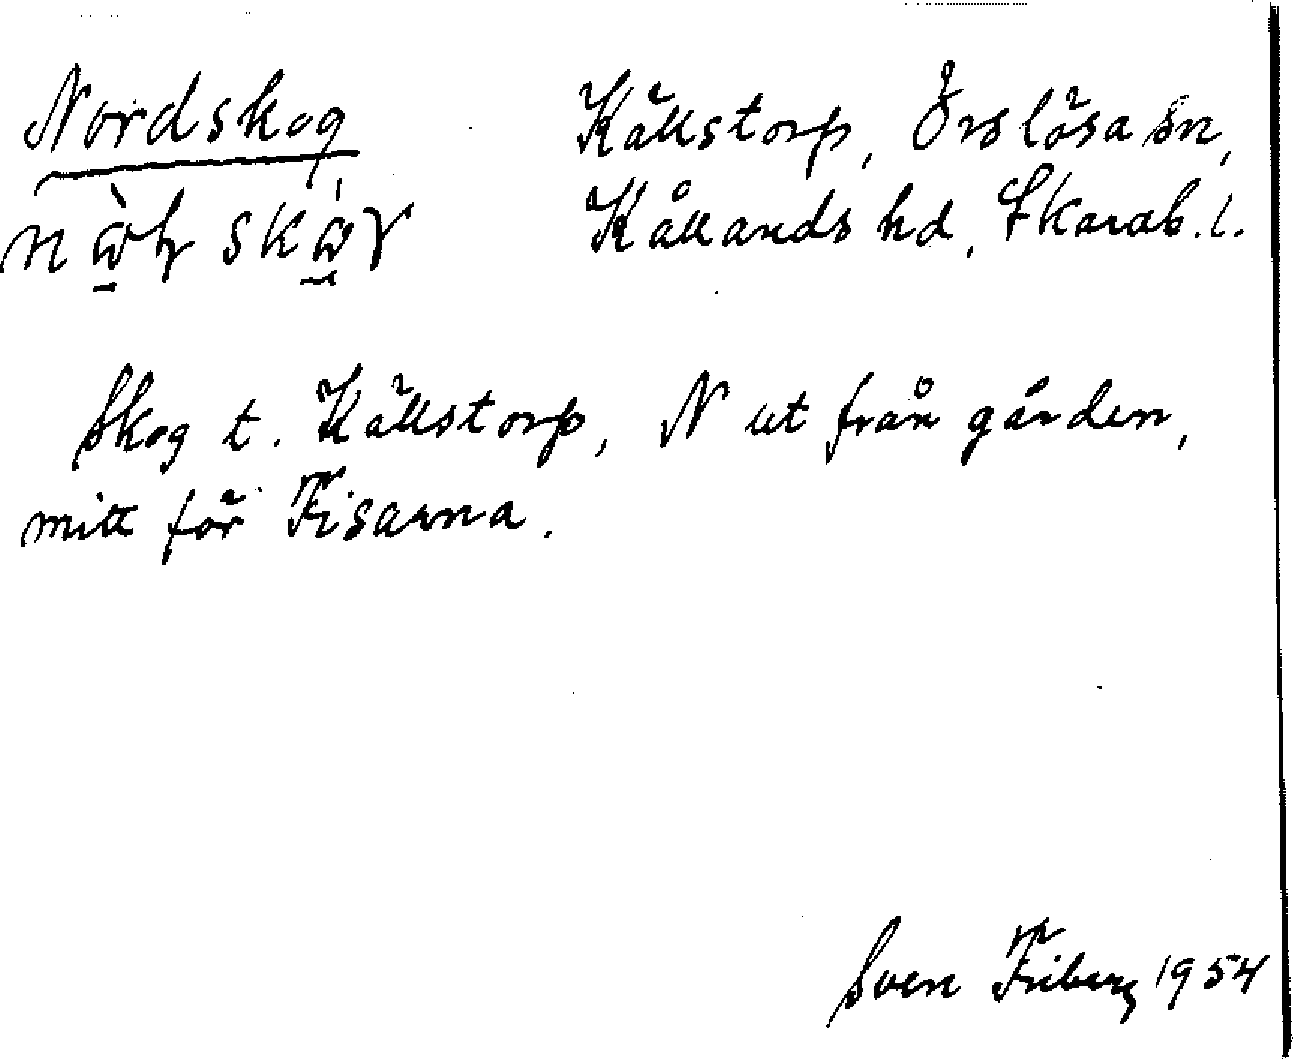 Nordskog
Källstorp, Örslösa sn,
Kållands hd, Skarab. l.
Skog t. Källstorp, N ut från gården,
mitt för Fisarna.
Sven Friberg 1954